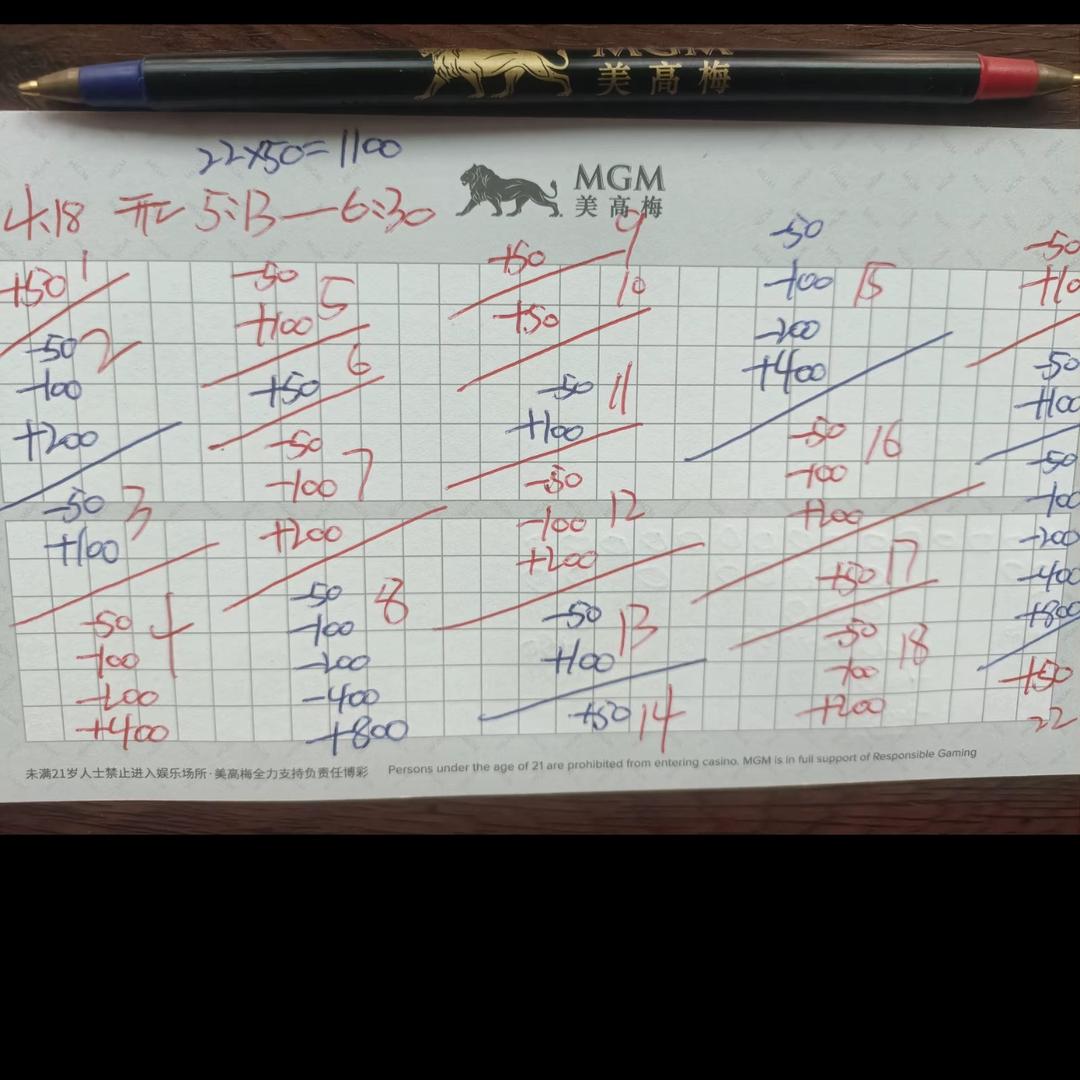 MGM
美高梅
22×50=1100
MGM
美高梅
4.18 5:13—6:30
+50 1
-50 2
-100
+200
-50 3
+100
-50 4
-100
-200
+400
-50
+100 5
+50 6
-50
-100 7
+200
-50
-100 8
-200
-400
+800
+50 9
+50 10
-50 11
+100
-50
-100 12
+200
-50 13
+100
+50 14
-50
-100 15
-200
+400
-50 16
-100
+200
+50 17
-50 18
-100
+200
-50
+10
-50
+100
-50
-100
-200
-400
+800
+50
22
未满21岁人士禁止进入娱乐场所·美高梅全力支持负责任博彩 Persons under the age of 21 are prohibited from entering casino. MGM is in full support of Responsible Gaming